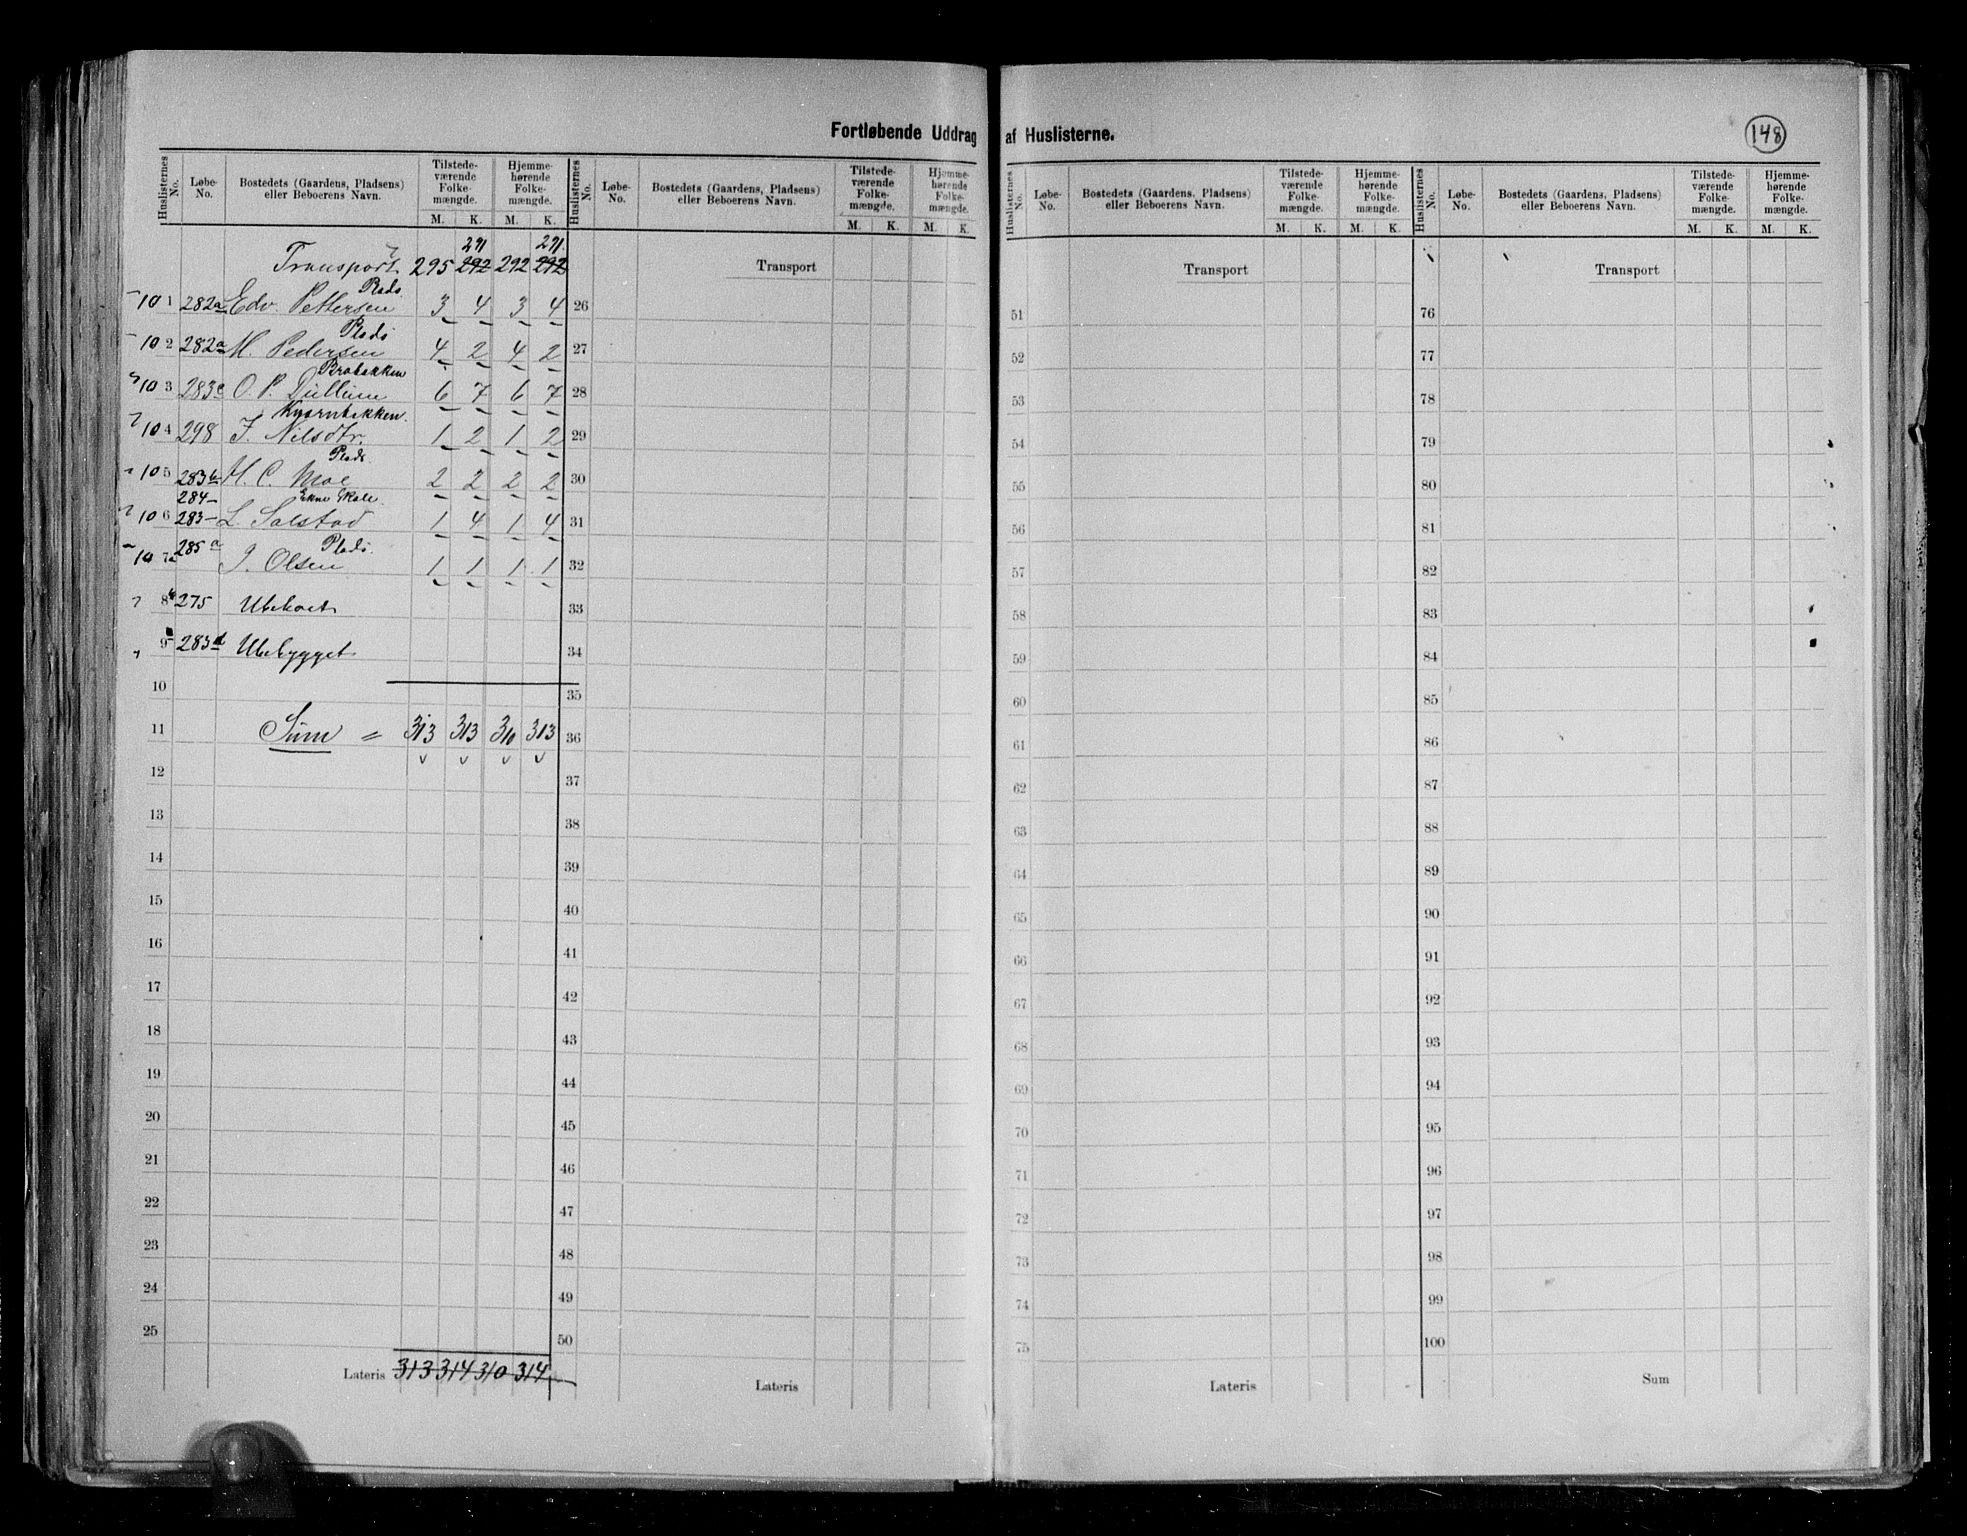 Fortløbende Uddrag af Huslisterne.
148
Huslisternes No. Løbe-No. Bostedets (Gaardens, Pladsen) eller Beboerens Navn. Tilstedeværende Folkemængde. Hjemmehørende Folkemængde.
M. K. M. K.
Huslisternes No. Løbe-No. Bostedets (Gaardens, Pladsen) eller Beboerens Navn. Tilstedeværende Folkemængde. Hjemmehørende Folkemængde.
M. K. M. K.
Huslisternes No. Løbe-No. Bostedets (Gaardens, Pladsen) eller Beboerens Navn. Tilstedeværende Folkemængde. Hjemmehørende Folkemængde.
M. K. M. K.
Huslisternes No. Løbe-No. Bostedets (Gaardens, Pladsen) eller Beboerens Navn. Tilstedeværende Folkemængde. Hjemmehørende Folkemængde.
M. K. M. K.
291 291.
Transport 295 292 292 292
Plads
101 282a Edv. Pettersen 3 4 3 4
Plads
102 282a M. Pedersen 4 2 4 2
Brobakken
103 283c O. P. Dullum 6 7 6 7
Kværnbakken
104 298 J. Nilsdtr. 1 2 1 2
Plads
105 283b H. C. Moe 2 2 2 2
284 Ekne Skole
106 283 L. Salstad 1 4 1 4
285a Plads
107a J. Olsen 1 1 1 1
8 275 Ubeboet
9 283d Ubebygget
10
11 Sum = 313 313 310 313
12
13
14
15
16
17
18
19
20
21
22
23
24
25
Lateris 313 314 310 314
Transport
26
27
28
29
30
31
32
33
34
35
36
37
38
39
40
41
42
43
44
45
46
47
48
49
50
Lateris
Transport
51
52
53
54
55
56
57
58
59
60
61
62
63
64
65
66
67
68
69
70
71
72
73
74
75
Lateris
Transport
76
77
78
79
80
81
82
83
84
85
86
87
88
89
90
91
92
93
94
95
96
97
98
99
100
Sum